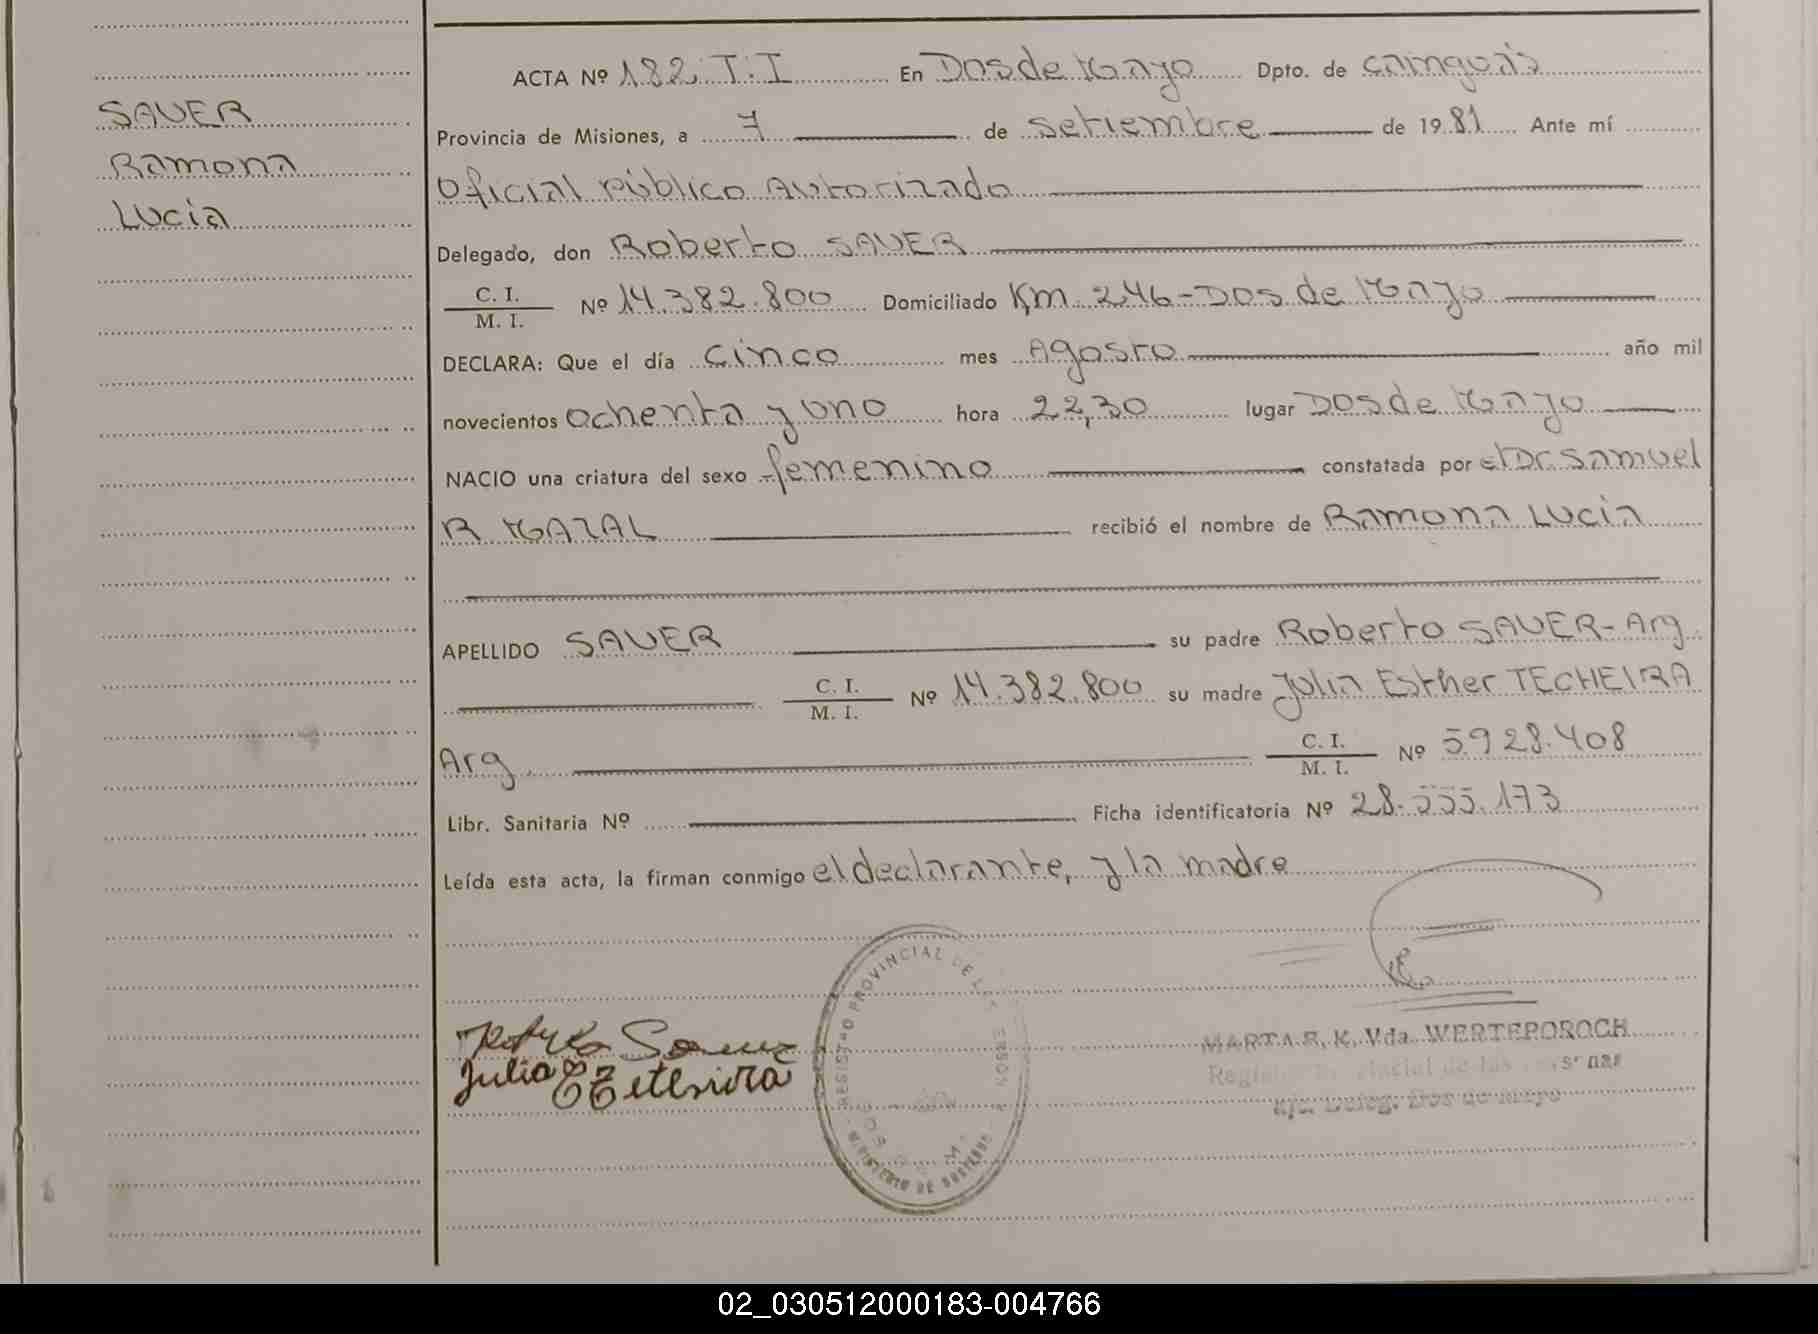 SAUER
Ramona
Lucia
ACTA Nº 182 T.I En Dos de Mayo Dpto. de cainguás
Provincia de Misiones, a 7 de setiembre de 1981 Ante mí
Oficial público Autorizado
Delegado, don Roberto SAUER
C. I.
M. I. Nº 14.382.800 Domiciliado Km 246-Dos de Mayo
DECLARA: Que el día cinco mes Agosto año mil
novecientos ochenta y uno hora 22,30 lugar Dos de Mayo
NACIO una criatura del sexo femenino constatada por el Dr. Samuel
R MAZAL recibió el nombre de Ramona Lucia
APELLIDO SAUER su padre Roberto SAUER-Arg
C. I.
M. I. Nº 14.382.800 su madre Julia Esther TECHEIRA
Arg C. I.
M. I. Nº 5.928.408
Libr. Sanitaria Nº Ficha identificatoria Nº 28.555.173
Leída esta acta, la firman conmigo el declarante, y la madre
Julia E
REGISTRO PROVINCIAL DE
MINISTERIO DE GOBIERNO
MARTA R. K. Vda. WERTEPOROCH
02_030512000183-004766